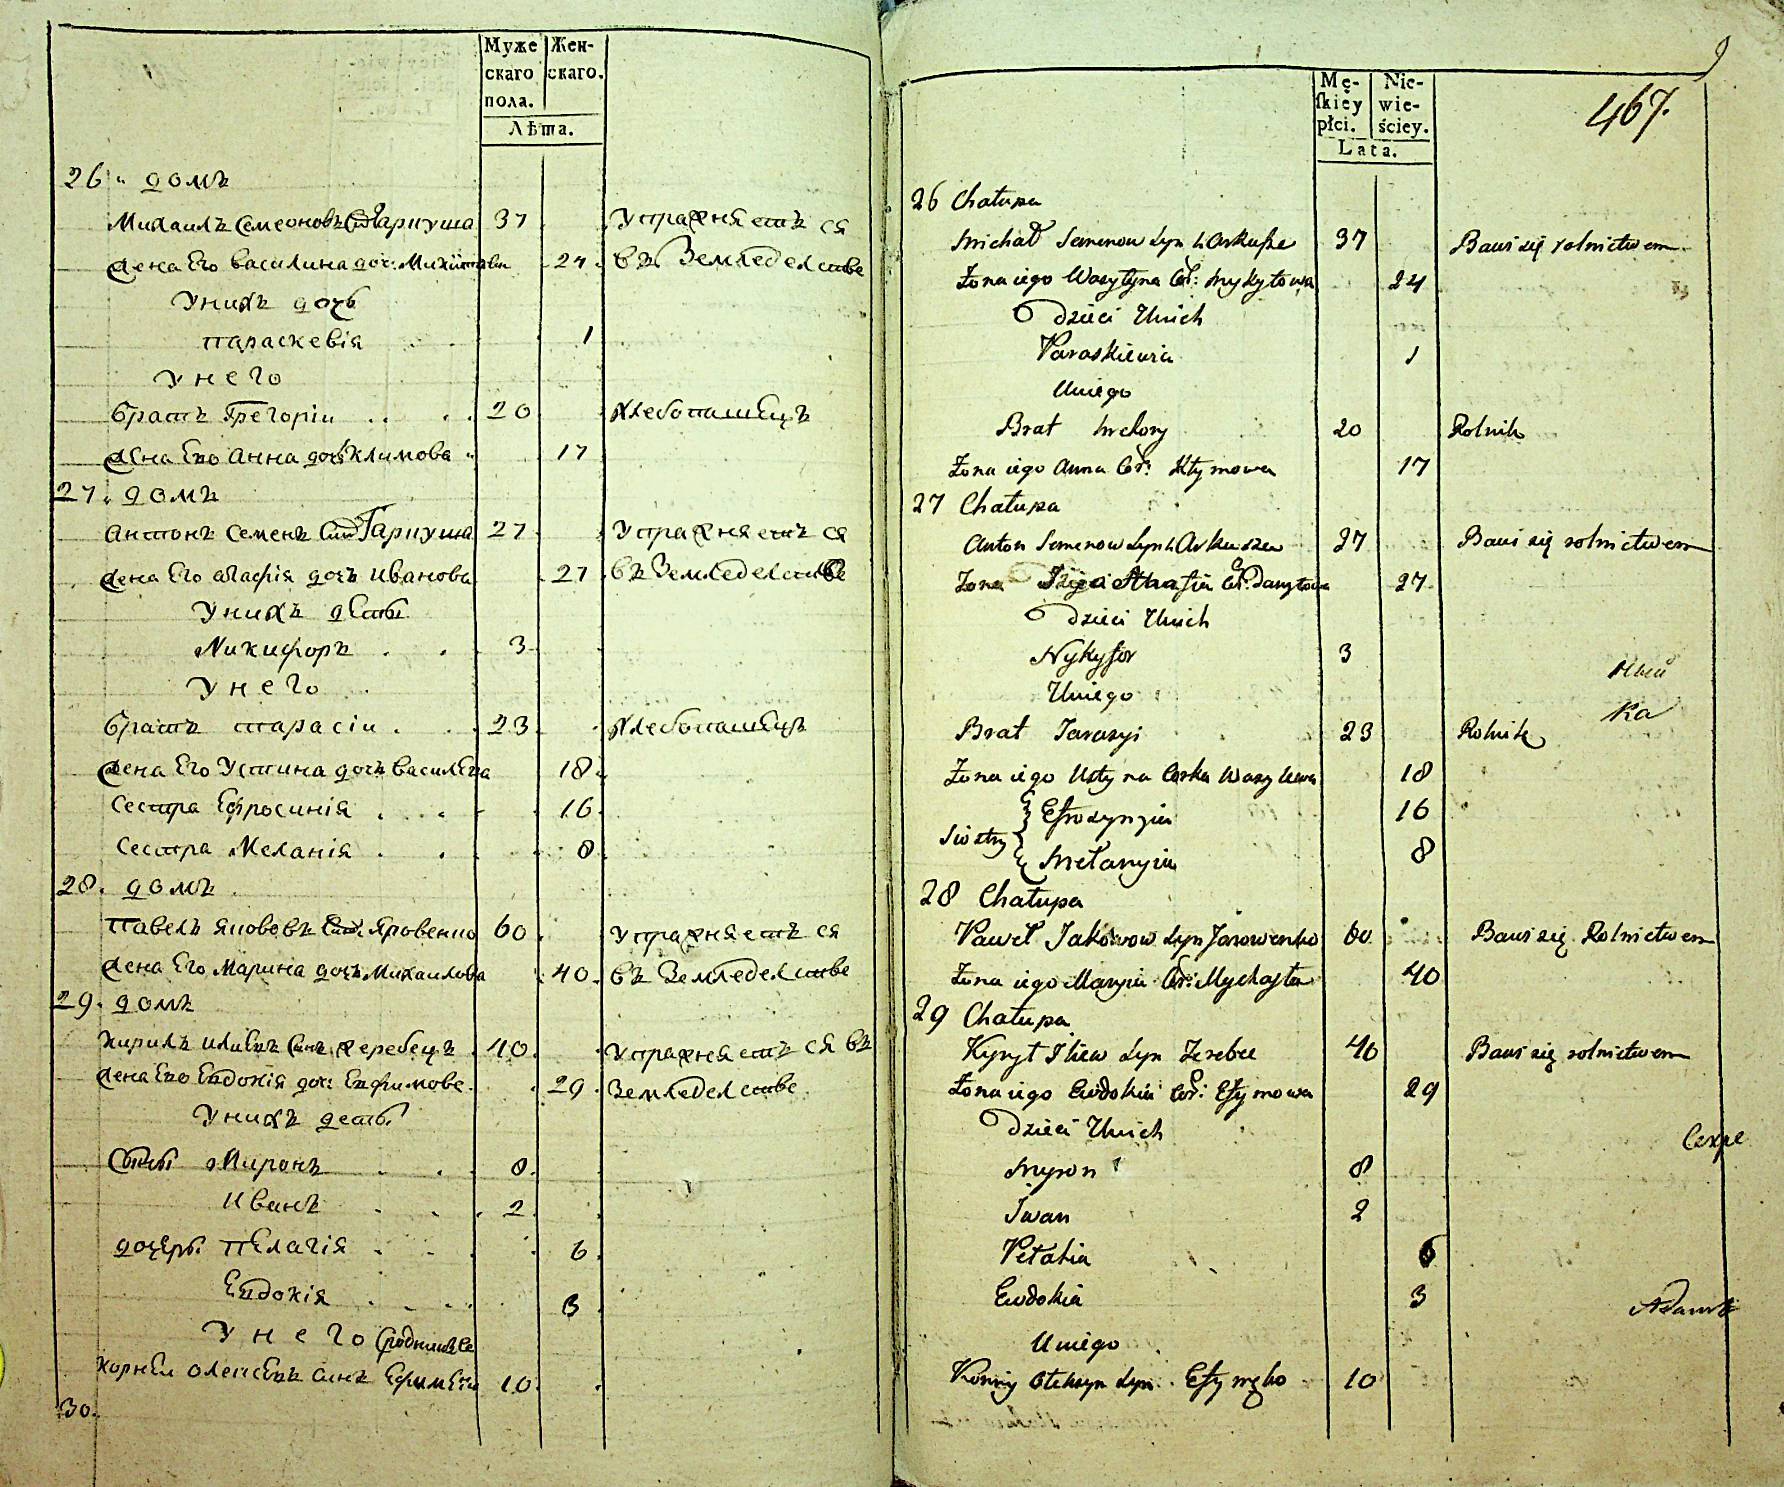 Муже
скаго
пола.
Жен-
скаго.
Лѣта.
26 домъ
Михаилъ Семеоновъ Сынъ Гаркуша 37 Упражняетъ ся
Жена Его Василина доч: 24 въ Земледелстве
У нихъ дочь
Параскевія 1
У него
братъ Грегоріи 20 Хлебопашецъ
Жена Его Анна дочь Климова 17
27. домъ
Антонъ Семенъ Сынъ Гаркуша 27 Упражняетъ ся
Жена Его Агафія дочь Иванова 27 въ Земледелстве
У нихъ дети
Никифоръ 3
У него
братъ Тарасіи 23 Хлебопашецъ
Жена Его Устина дочь Василева 18
Сестра Ефросинія 16
Сестра Меланія 8
28. домъ
Павелъ Якововъ Сынъ Яровенко 60 Упражняетъ ся
Жена Его Марина дочь Михаилова 40 въ Земледелстве
29. домъ
Кирилъ Илиевъ Сынъ Жеребецъ 40 Упражняетъ ся въ
Жена Его Евдокія доч: Ефимова 29 Земледелстве
У нихъ дети
Сыны Миронъ 8
Иванъ 2
дочери Пелагія 6
Евдокія 3
У него
Корнеи Олексеевъ Сынъ 10
30.
9
467.
Mę-
skiey
płci.
Nie-
wie-
ściey.
Lata.
26 Chałupa
Michał Semenow Syn Harkusza 37 Bawi się rolnictwem
Żona iego Wasylyna Cór: Mykytowa 24
Dzieci Unich
Paraskiewia 1
Uniego
Brat Hrehory 20 Rolnik
Żona iego Anna Cór: Kłymowa 17
27 Chałupa
Anton Semenow Syn Harkusza 27 Bawi się rolnictwem
Żona Iego Ahafia Cór: Danyłowa 27
Dzieci Unich
Nykyfor 3
Uniego
Brat Tarasyi 23 Rolnik
Żona iego Ustyna Corka Wasylewa 18
Siostry
Efrozynyia 16
Mełanyia 8
28 Chałupa
Paweł Jakowow Syn Jarowenko 60 Bawi się Rolnictwem
Żona iego Maryia Cór: Mychayła 40
29 Chałupa
Kyrył Iliew Syn Zerebec 40 Bawi się rolnictwem
Żona iego Ewdokia Cór: Efymowa 29
Dzieci Unich
Myron 8
Iwan 2
Pełahia 6
Ewdokia 3
Uniego
Korniy Ołeksyn Syn Efymęko 10
ка